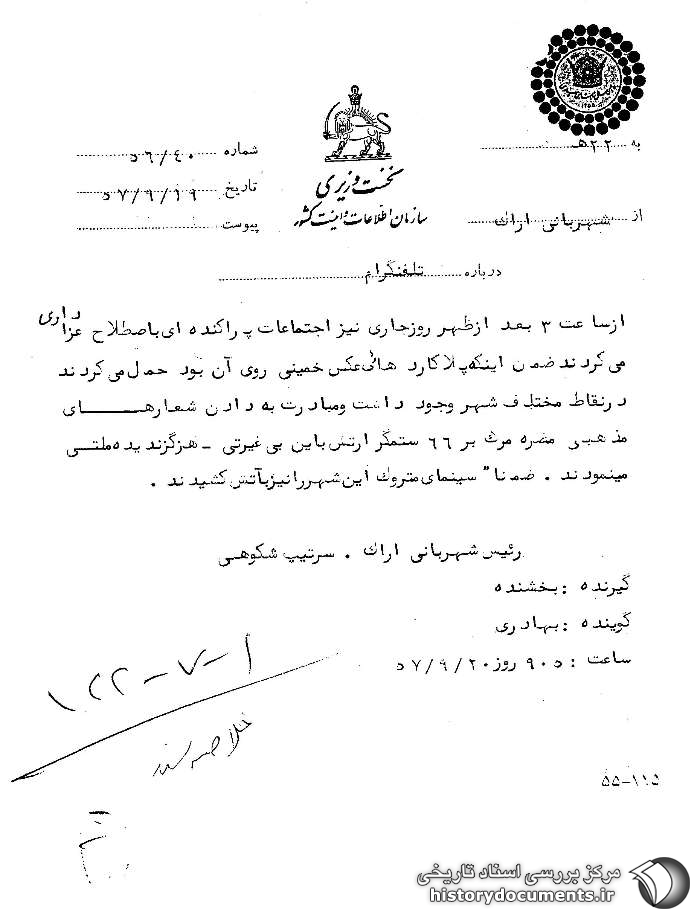 به ۲۲ ه‍
شماره ۵۶/۴۰
نخست وزیری
تاریخ ۵۷/۹/۱۹
سازمان اطلاعات و امنیت کشور
از شهربانی اراک
پیوست
درباره تلفنگرام
ازساعت ۳ بعد ازظهر روزجاری نیز اجتماعات پراکنده ای باصطلاح عزاداری
می کردند ضمن اینکه پلاکارد هائی عکس خمینی روی آن بود حمل می کردند
درنقاط مختلف شهر وجود داشت ومبادرت به دادن شعارهای
مذهبی مضره مرگ بر ۶۶ ستمگر ارتش باین بی غیرتی - هرگز ندیده ملتی
مینمودند . ضمنا" سینمای متروک این شهررانیزبآتش کشیدند .
رئیس شهربانی اراک . سرتیپ شکوهی
گیرنده : بخشنده
گوینده : بهادری
ساعت : ۹۰۵ روز ۵۷/۹/۲۰
۱۲۲-۷-۱
خلاصه سند
۵۵-۱۱۵
مرکز بررسی اسناد تاریخی
historydocuments.ir